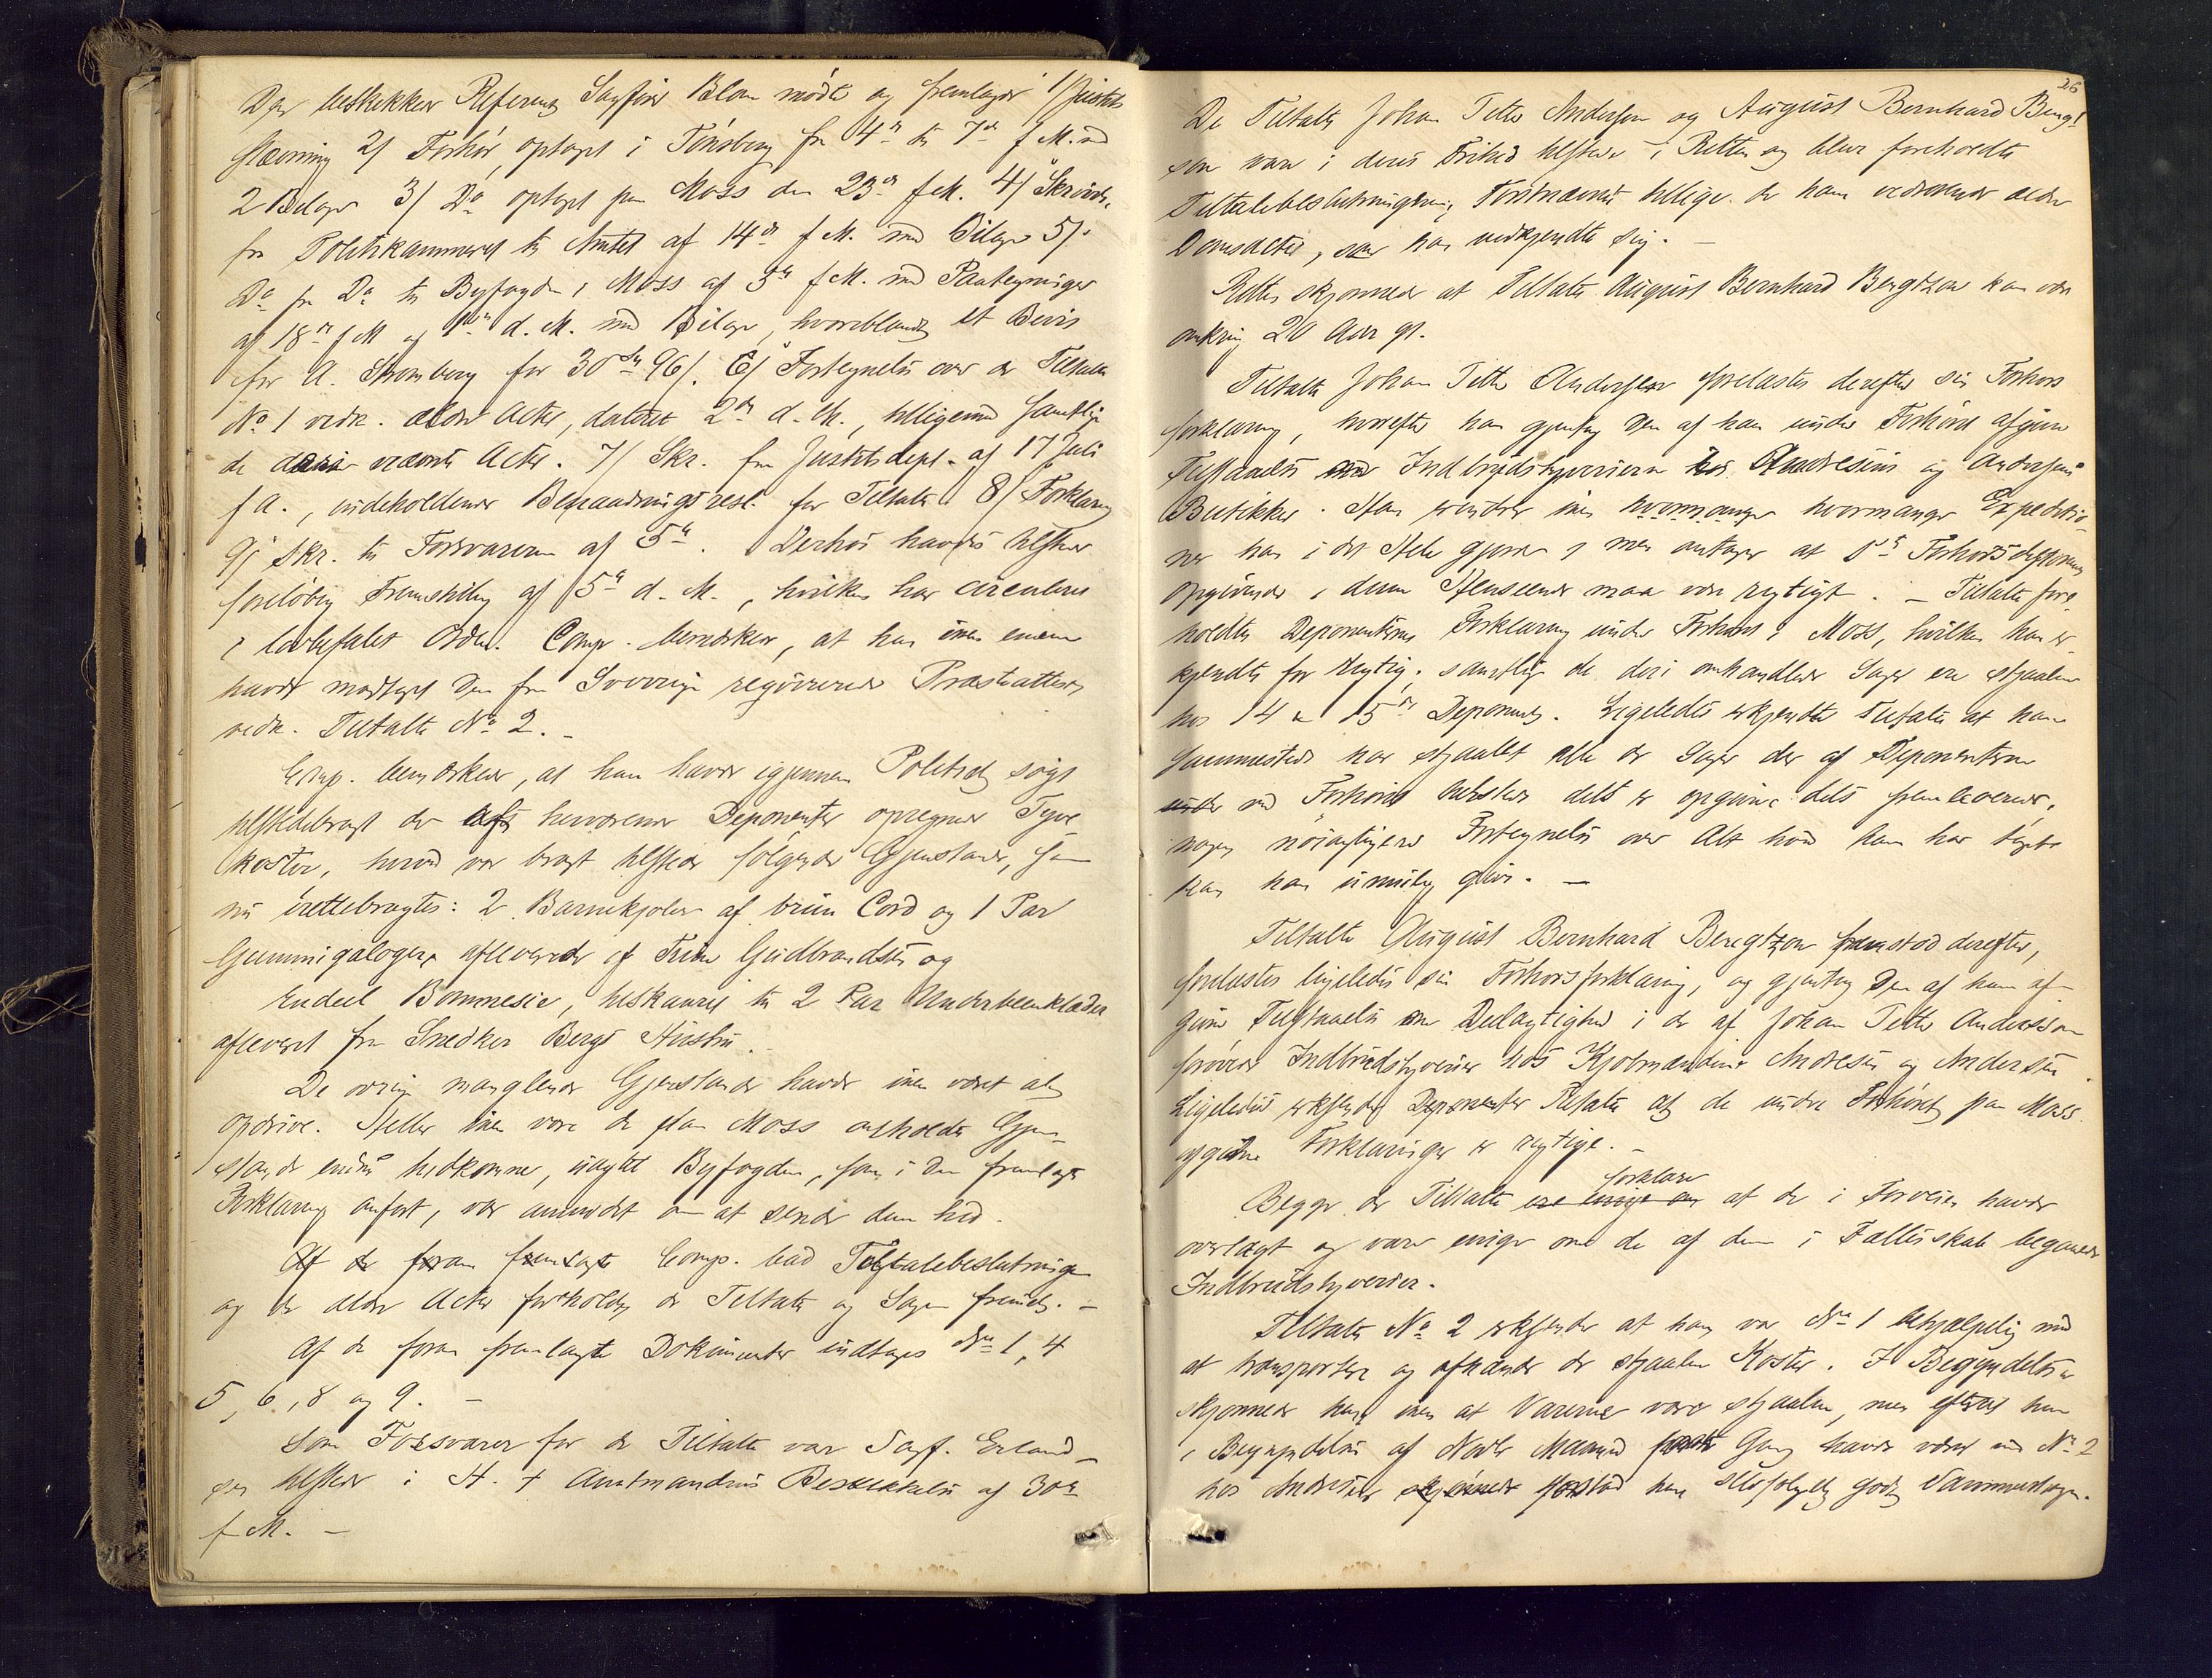 Den beskikkede Referent Sagfører Blom mødte og fremlagde 1/ Justits
stævning 2/ Forhør, optaget i Tönsberg fra 4de til 7de f. M. med
2 Bilage 3/ Do optaget paa Moss den 23de f. M. 4/ Skrivelse
fra Politikammeret til Amtet af 14de f. M. med Bilage 5/.
Do fra Do til Byfogden i Moss af 5te f. M. med Paategninger
af 18de f M og d. M. med Bilage, hvoriblandt et Bevis
for A. Stromberg for 30 96/. 6/ Fortegnelse over de Tiltalte
No 1 vedk. ældre Acter, dateret 2den d. M., tilligemed samtlige
de deri nævnte Acter. 7/ Skr. fra Justitsdept. af 17 Juli
f A., indeholdende Benaadningsresl. for Tiltalte 8/ Forklaring
9/ Skr. til Forsvareren af 5te. Derhos havdes tilstede
foreløbig Fremstilling af 5te d. M., hvilken har circuleret
i lovbefalet Orden. Comp. bemærkede, at han inen endnu
havde modtaget den fra Sverrige reqvirerede Præsteattest
vedk. Tiltalte No 2. -
Comp. bemærkede, at han havde igjennem Politiet søgt
tilstedebragt de af henværende Deponenter opregnede Tyve
koster, hvoraf var bragt tilstede følgende Gjenstande, som
nu irettebragtes: 2 Barnekjoler af brun Cord og 1 Par
Gummigalogen afleverede af Trine Gudbrandsen og
Endeel Bommesie, tilskaaret til 2 Par Underbeenklæder
afleveret fra Snedker Bergs Hustru.
De øvrige manglende Gjenstande havde inen været at
opdrive. Heller inen vare de fra Moss anholdte Gjen-
stande endnu hidkomne, uagtet Byfogden, som i den fremlagte
Forklaring anført, var anmodet om at sende dem hid.
Af de foran fremlagte Comp. bad Tiltalebeslutningen
og de ældre Acter foreholdt de Tiltalte og Sagen fremmet. -
Af de foran fremlagte Dokumenter indtages No 1, 4
5, 6, 8 og 9. -
Som Forsvarer for de Tiltalte var Sagf. Erland-
sen tilstede i H. t. Amtmandens Beskikkelse af 30te
f. M. -
26
De Tiltalte Johan Petter Andersen og August Bernhard Bengt-
son vare i deres Frihed tilstede i Retten og blev foreholdte
Tiltalebeslutningen, Førstnævnte tillige de ham vedrørende ældre
Domsacter, som han vedkjendte sig. -
Retten skjønnede at Tiltalte August Bernhard Bengtzon kan være
omkring 20 Aar gl.
Tiltalte Johan Petter Andersen forelæstes derefter sin Forhørs
forklaring, hvorefter han gjentog den af ham under Forhøret afgivne
Tilstaaelse om Indbrudstyverierne hos Andresens og Andersens
Butikker. Han erindrer inen hvormange hvormange Expeditio
ner han i det Hele gjorde, men antager at 1ste Forhørsdeponents
Opgivende i denne Henseende maa være rigtigt. - Tiltalte fore-
holdtes Deponenternes Forklaring under Forhøret i Moss, hvilken han er-
kjendte for rigtig; samtlige de deri omhandlede Sager ere stjaalne
hos 14 og 15de Deponent. Ligeledes erkjendte Tiltalte at han
sammesteds har stjaalet alle de Sager der af Deponenterne
under ved Forhøret tilstede dels er opgivne dels fremleverede,
nogen nøiagtigere Fortegnelse over Alt hvad han har taget
kan han umulig give. -
Tiltalte August Bernhard Bengtzon fremstod derefter,
forelæstes ligeledes sin Forhørsforklaring, og gjentog den af ham af-
givne Tilstaaelse om Delagtighed i de af Johan Petter Andersson
forøvede Indbrudstyverier hos Kjøbmændene Andresen og Andersen.
Ligeledes erkjender Deponenter Tiltalte at de under Forhøret paa Moss
afgivne Forklaringer er rigtige. -
forklare
Begge de Tiltalte ere enige om at de i Forveien havde
overlagt og vare enige om de af dem i Fællesskab begaaede
Indbrudstyverier.
Tiltalte No 2 erkjender at han var No 1 behjælpelig med
at transportere og afhænde de stjaalne Koster. I Begyndelsen
skjønnede han inen at Varerne vare stjaalne, men efterat han
i Begyndelsen af Maaned første Gang havde været med No 2
hos Andresen skjønnede forstod han selvfølgelig godt Sammenhængen.